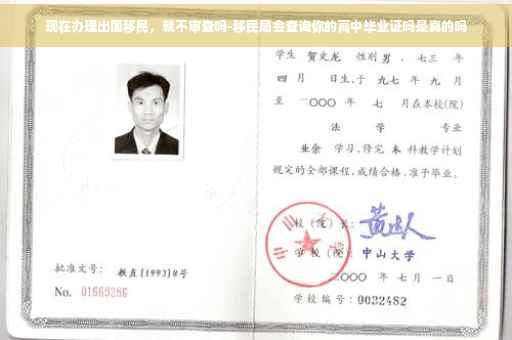 现在办理出国移民，就不审查吗-移民局会查询你的高中毕业证吗是真的吗
学生 贺文龙 性别 男，七三 年
四 月 日生，于 九七 年 九 月
至 二〇〇〇 年 七 月在本校(院)
法 学 专业
业余 学习，修完 本 科教学计划
规定的全部课程，成绩合格，准予毕业。
校（院）长：
学 校（院）： 中山大学
二〇〇〇 年 七 月 一 日
批准文号： 教直[1993]8号
No. 01669286
学校编号：0032482